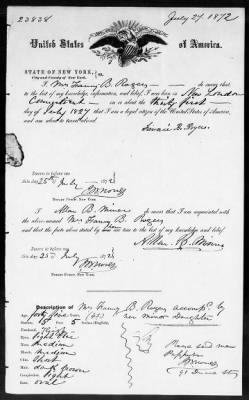 23838
July 27. 1872
United States of America.
STATE OF NEW YORK,
City and County of New York.
I Mrs Fanny B. Rogers do swear that
to the best of my knowledge, information, and belief, I was born in New London
Connecticut on or about the thirty first
day of July 1827 that I am a legal citizen of the United States of America,
and am about to travel abroad.
Fannie B. Rogers
Sworn to before me
this 25 July 1872
NOTARY PUBLIC, NEW YORK.
I Allan B. Miner do swear that I am acquainted with
the above-named Mrs Fanny B. Rogers
and that the facts above stated by her are true to the best of my knowledge and belief
Allan B. Miner
Sworn to before me
this 25 July 1872
NOTARY PUBLIC, NEW YORK.
Description of Mrs Fanny B. Rogers accomp. by
her minor Daughter
Age, forty five (45)
Stature, 5 Feet 5 Inches (English)
Forehead, High
Eyes,
Nose, medium
Mouth, medium
Chin, Short
Hair, dark brown
Complexion, light
Face, oval
Please send
91 Duane St